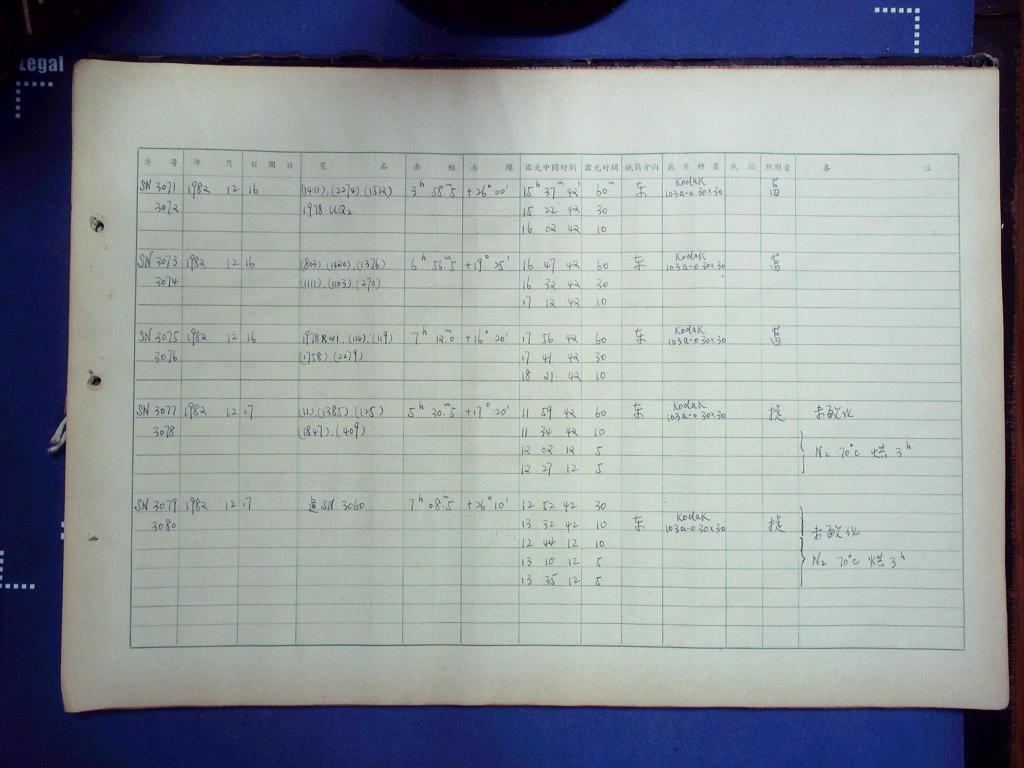 Legal
序 号 年 月 日 期 日 星 名 赤 经 赤 纬 露光中间时刻 露光时间 镜筒方向 底片种类 观测者 备 注
SN 3071 1982 12 16 (1411).(2274).(1512) 3h 58.m5 +26° 00' 15h 37m 42s 60m 东 Kodak 103a-0 30×30
3072 1978 UQ2 15 22 42 30
16 02 42 10
SN 3073 1982 12 16 (803).(1620).(1376) 6h 56.m5 +19° 25' 16 47 42 60 东 Kodak 103a-0 30×30
3074 (1111).(1103).(270) 16 32 42 30
17 12 42 10
SN 3075 1982 12 16 (114).(119) 7h 12.m0 +16° 20' 17 56 42 60 东 Kodak 103a-0 30×30
3076 (1758).(2279) 17 41 42 30
18 21 42 10
SN 3077 1982 12 17 (11).(1385).(125) 5h 30.m5 +17° 20' 11 59 42 60 东 Kodak 103a-0 30×30 未敏化
3078 (1847).(409) 11 34 42 10
12 02 12 5 N2 70°C 烘 3h
12 27 12 5
SN 3079 1982 12 17 追 SN 3060 7h 08.m5 +26° 10' 12 52 42 30
3080 13 32 42 10 东 Kodak 103a-0 30×30 未敏化
12 44 12 10
13 10 12 5 N2 70°C 烘 3h
13 35 12 5